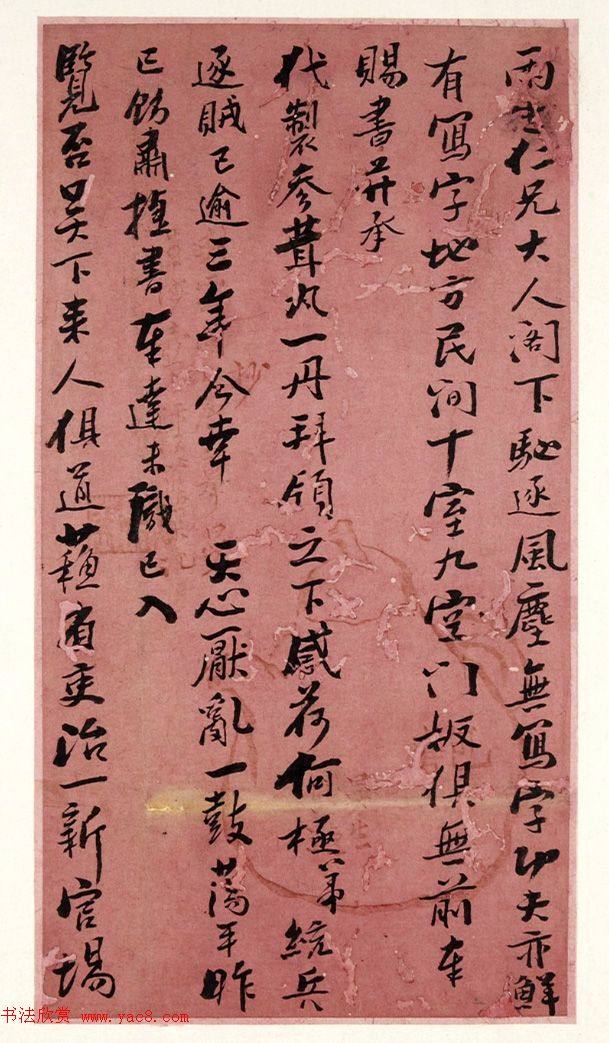 雨生仁兄大人閣下馳逐風塵無寫字功夫亦鮮
有寫字地方民间十室九空门板俱無前奉
賜書并承
代製參茸丸一丹拜領之下感荷何極第統兵
逐賊已逾三年今幸
天心厭亂一鼓蕩平昨
已飭肅摧書奉達未識已入
覽否吴下来人俱道蘇省吏治一新官場
书法欣赏 www.yac8.com